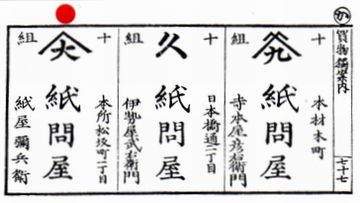 か
買物獨案内
七十七
十
組
紙問屋
本材木町
寺本屋彦右衛門
十
組
久
紙問屋
日本橋通二丁目
伊勢屋武右衛門
十
組
大
紙問屋
本所松坂町二丁目
紙屋彌兵衛